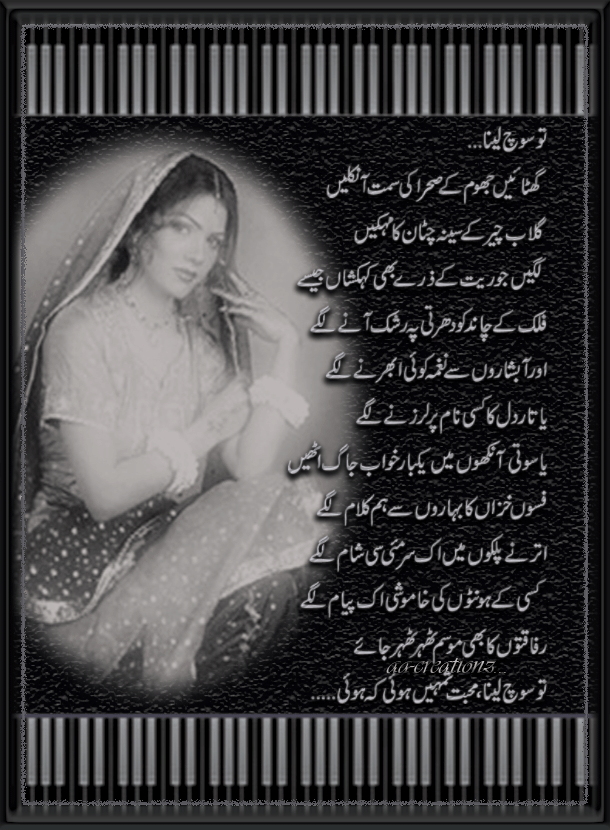 تو سوچ لینا...
گھٹائیں جھوم کے صحرا کی سمت آ نکلیں
گلاب چیر کے سینہ چٹان کا مہکیں
لگیں جو ریت کے ذرے بھی کہکشاں جیسے
فلک کے چاند کو دھرتی پہ رشک آنے لگے
اور آبشاروں سے نغمہ کوئی ابھرنے لگے
یا تار دل کا کسی نام پر لرزنے لگے
یا سوتی آنکھوں میں یکبار خواب جاگ اٹھیں
فسوں خزاں کا بہاروں سے ہم کلام لگے
اترنے پلکوں میں اک سرمئی سی شام لگے
کسی کے ہونٹوں کی خاموشی اک پیام لگے
رفاقتوں کا بھی موسم ٹھہر ٹھہر جائے
aa-creationz
تو سوچ لینا، محبت تمہیں ہوئی کہ ہوئی.....